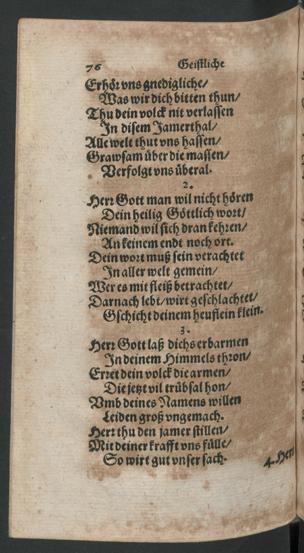 76 Geistliche
Erhör vns gnedigliche/
Was wir dich bitten thun/
Thu dein volck nit verlassen
In disem Jamerthal/
Alle welt thut vns hassen/
Grawsam über die massen/
Verfolgt vns überal.
2.
Herr Gott man wil nicht hören
Dein heilig Göttlich wort/
Niemand wil sich dran kehren/
An keinem endt noch ort.
Dein wort muß sein verachtet
In aller welt gemein/
Wer es mit fleiß betrachtet/
Darnach lebt/ wirt geschlachtet/
Gschicht deinem heuflein klein.
3.
Herr Gott laß dichs erbarmen
In deinem Himmels thron/
Erret dein volck die armen/
Die jetzt vil trübsal hon/
Vmb deines Namens willen
Leiden groß vngemach.
Herr thu den jamer stillen/
Mit deiner krafft vns fülle/
So wirt gut vnser sach.
4. Herr